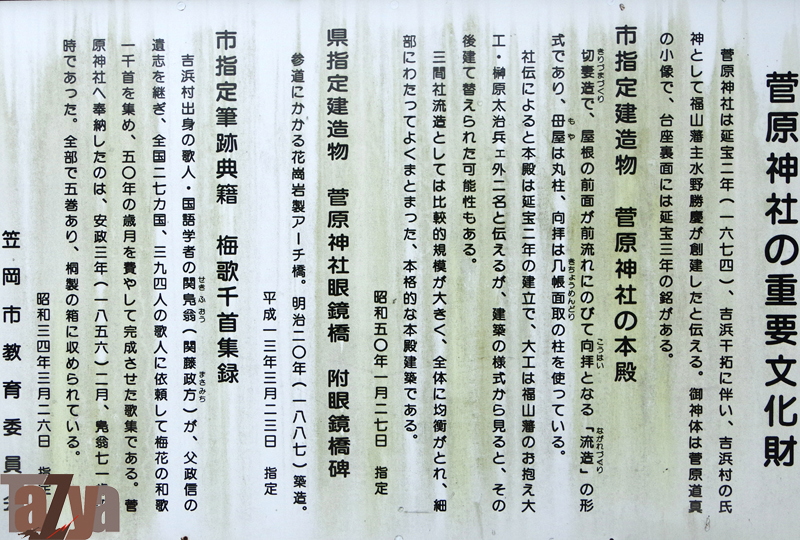 菅原神社の重要文化財
菅原神社は延宝二年(一六七四)、吉浜干拓に伴い、吉浜村の氏
神として福山藩主水野勝慶が創建したと伝える。御神体は菅原道真
の小像で、台座裏面には延宝三年の銘がある。
市指定建造物 菅原神社の本殿
切妻造で、屋根の前面が前流れにのびて向拝となる「流造」の形
きりづまづくり こうはい ながれづくり
式であり、母屋は丸柱、向拝は几帳面取の柱を使っている。
もや きちょうめんどり
社伝によると本殿は延宝二年の建立で、大工は福山藩のお抱え大
工・榊原太治兵ェ外二名と伝えるが、建築の様式から見ると、その
後建て替えられた可能性もある。
三間社流造としては比較的規模が大きく、全体に均衡がとれ、細
部にわたってよくまとまった、本格的な本殿建築である。
昭和五〇年一月二七日 指定
県指定建造物 菅原神社眼鏡橋 附眼鏡橋碑
参道にかかる花崗岩製アーチ橋。明治二〇年(一八八七)築造。
平成一三年三月二三日 指定
市指定筆跡典籍 梅歌千首集録
吉浜村出身の歌人・国語学者の関鳧翁(関藤政方)が、父政信の
せきふおう まさみち
遺志を継ぎ、全国二七カ国、三九四人の歌人に依頼して梅花の和歌
一千首を集め、五〇年の歳月を費やして完成させた歌集である。菅
原神社へ奉納したのは、安政三年(一八五六)二月、鳧翁七一
時であった。全部で五巻あり、桐製の箱に収められている。
昭和三四年三月二六日 指定
笠岡市教育委員会
TaZya